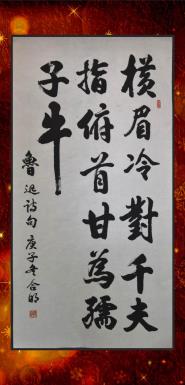 橫眉冷對千夫
指俯首甘為孺
子牛
魯迅詩句 庚子年合明